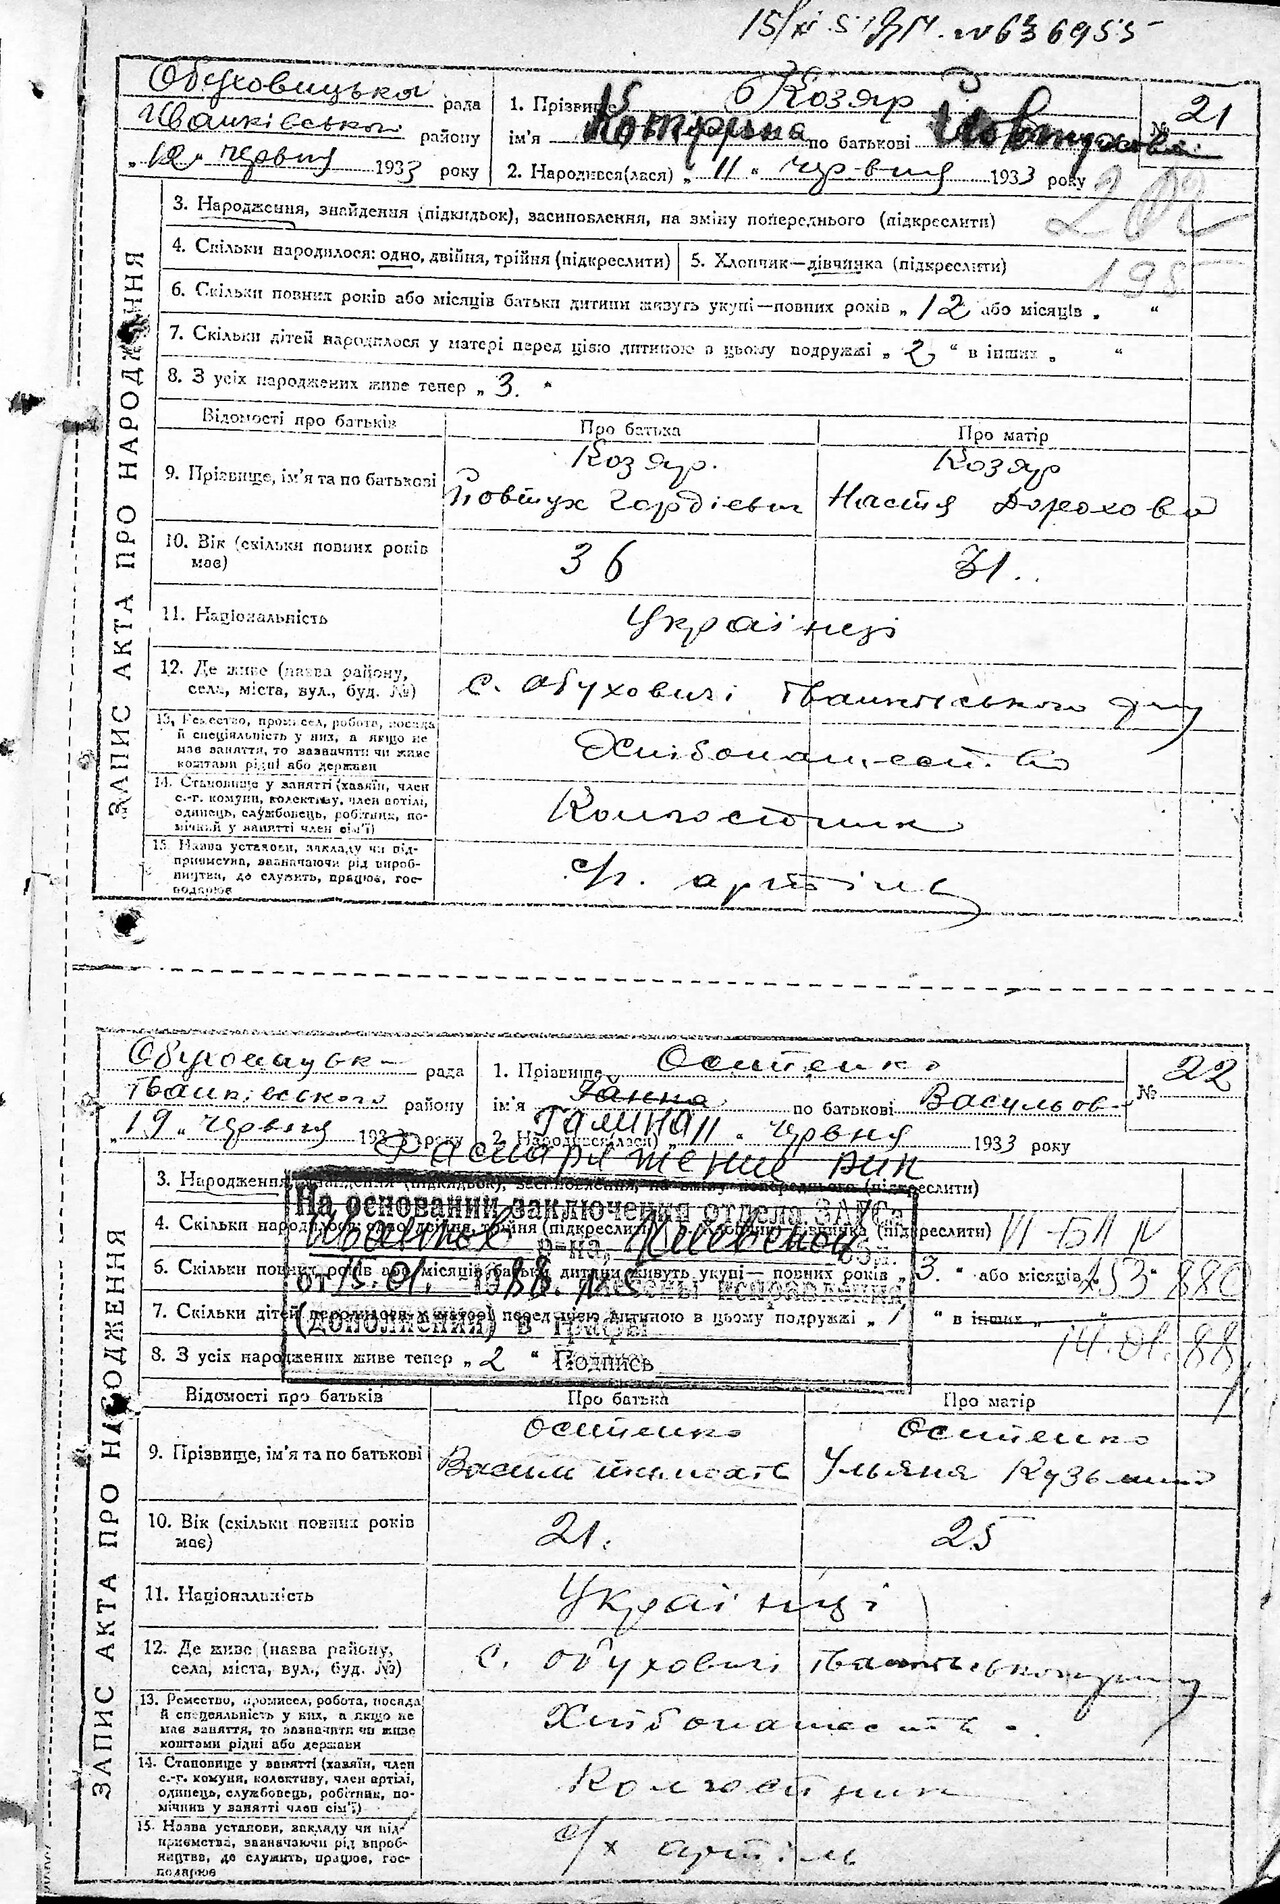 15/XI 51 № 636955
Обуховицька рада
Іванківського району
„12“ червня 1933 року
1. Прізвище Козяр
ім'я по батькові Йовтухова
2. Народився(лася) „11“ червня 1933 року
№ 21
202
195
ЗАПИС АКТА ПРО НАРОДЖЕННЯ
3. Народження, знайдення (підкидьок), засиновлення, на зміну попереднього (підкреслити)
4. Скільки народилося: одно, двійня, трійня (підкреслити)
5. Хлопчик—дівчинка (підкреслити)
6. Скільки повних років або місяців батьки дитини живуть укупі—повних років „12 або місяців „ “
7. Скільки дітей народилося у матері перед цією дитиною в цьому подружжі „2“ в інших „ “
8. З усіх народжених живе тепер „3.“
Відомості про батьків Про батька Про матір
9. Прізвище, ім'я та по батькові
Козяр. Козяр
Йовтух Гордієвич Настя Дорохова
10. Вік (скільки повних років має) 36 31.
11. Національність Українці
12. Де живе (назва району, села, міста, вул., буд. №)
с. Обуховичі Іванківського р-ну
13. Ремество, промисел, робота, посада
й спеціяльність у них, а якщо не
має заняття, то зазначити чи живе
коштами рідні або держави
Хлібопашество
14. Становище у занятті (хазяїн, член
с.-г. комуни, колективу, член артілі,
одинець, службовець, робітник, по-
мічний у занятті член сім'ї)
Колгоспник
15. Назва установи, закладу чи під-
приємства, зазначаючи рід вироб-
ництва, де служить, працює, гос-
подарює
с/г. артіль
Обуховицьк рада
Іванківського району
„19“ червня 1933 року
1. Прізвище Осипенко
ім'я Ганна по батькові Васильов
Галина
2. Народився(лася) „11“ червня 1933 року
№ 22
ЗАПИС АКТА ПРО НАРОДЖЕННЯ
3. Народження, знайдення (підкидьок), засиновлення, на зміну попереднього (підкреслити)
На основании заключения отдела ЗАГСа
4. Скільки народилося: одно, двійня, трійня (підкреслити) (підкреслити)
р-на,
VI-БЛ №
6. Скільки повних років або місяців батьки дитини живуть укупі—повних років „3.“ або місяців
253880
от 15.01. 1988. внесены исправления,
7. Скільки дітей народилося у матері перед цією дитиною в цьому подружжі „1 “ в інших „
(дополнения) в графы
14.01.88
8. З усіх народжених живе тепер „2“
Подпись
Відомості про батьків Про батька Про матір
9. Прізвище, ім'я та по батькові
Осипенко Осипенко
Васил Ульяна Кузьмин
10. Вік (скільки повних років має) 21. 25
11. Національність Українці
12. Де живе (назва району, села, міста, вул., буд. №)
с. Обуховичі Іванківського р-ну
13. Ремество, промисел, робота, посада
й спецеяльність у них, а якщо не
має заняття, то зазначити чи живе
коштами рідні або держави
Хлібопашеств
14. Становище у занятті (хазяїн, член
с.-г. комуни, колективу, член артілі,
одинець, службовець, робітник, по-
мічник у занятті член сім'ї)
Колгоспник
15. Назва установи, закладу чи під-
приємства, зазначаючи рід вироб-
ництва, де служить, працює, гос-
подарює
с/х артіль